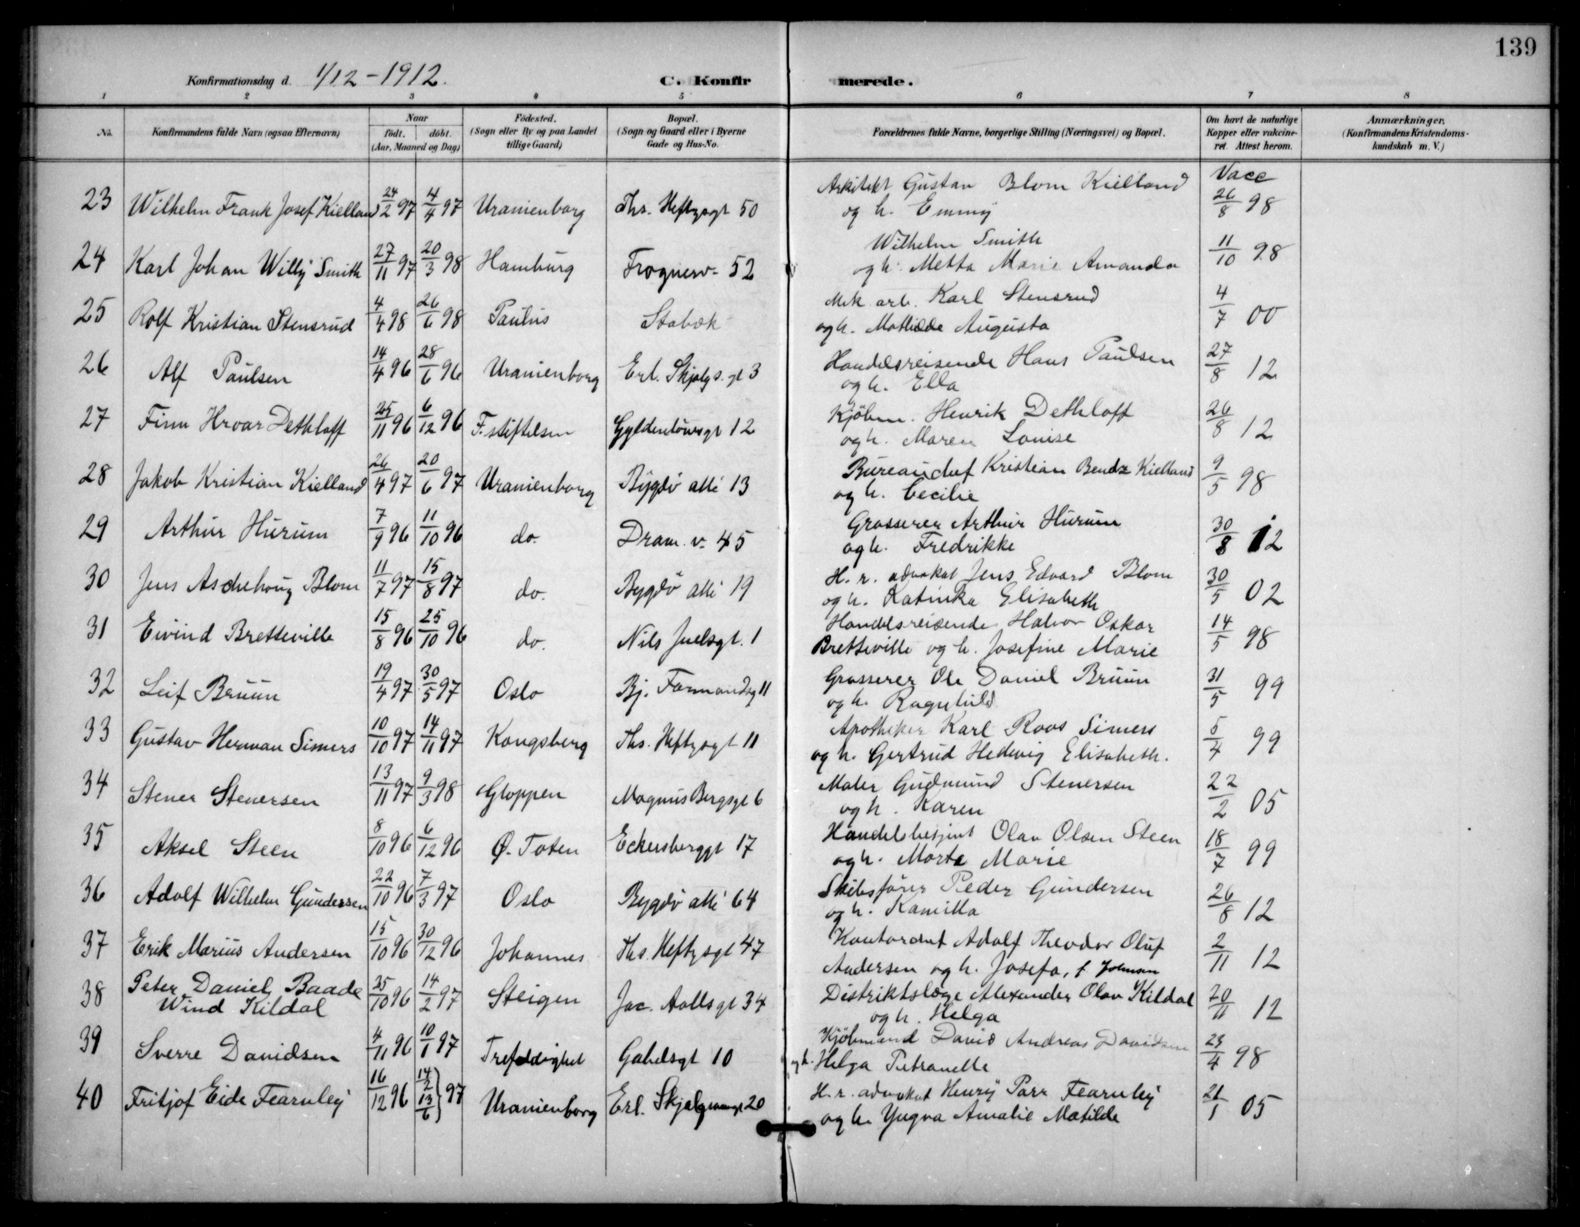 139
Konfirmationsdag d. 1/12 - 1912. C. Konfirmerede.
1 2 3 4 5 6 7 8
No. Konfirmandens fulde Navn (ogsaa Efternavn) Naar født. døbt. (Aar, Maaned og Dag) Fødested. (Sogn eller By og paa Landet tillige Gaard) Bopæl. (Sogn og Gaard eller i Byerne Gade og Hus-No. Forældrenes fulde Navne, borgerlige Stilling (Næringsvei) og Bopæl. Om havt de naturlige Kopper eller vaccineret. Attest herom. Anmærkninger. (Konfirmandens Kristendomskundskab m. V.)
Vacc
23 Wilhelm Frank Josef Kielland 24/2 97 4/4 97 Uranienborg Ths. Heftyesgt 50 Arkitekt Gustav Blom Kielland og h. Emmy 26/8 98
24 Karl Johan Willy Smith 27/11 97 20/3 98 Hamburg Frognerv. 52 Wilhelm Smith og h. Metta Marie Amanda 11/10 98
25 Rolf Kristian Stensrud 4/4 98 26/6 98 Paulus Stabæk Mek. arb. Karl Stensrud og h. Mathilde Augusta 4/7 00
26 Alf Paulsen 14/4 96 28/6 96 Uranienborg Erl. Skjalgs. gt 3 Handelsreisende Hans Paulsen og h. Ella 27/8 12
27 Finn Hroar Dethloff 25/11 96 6/12 96 F. stiftelsen Gyldenløwsgt 12 Kjøbm. Henrik Dethloff og h. Maren Louise 26/8 12
28 Jakob Kristian Kielland 26/4 97 20/6 97 Uranienborg Bygdø alle 13 Bureauchef Kristian Bendz Kielland og h. Cecilie 9/5 98
29 Arthur Hurum 7/9 96 11/10 96 do. Dram. v. 45 Grosserer Arthur Hurum og h. Fredrikke 30/8 12
30 Jens Aschehoug Blom 11/7 97 15/8 97 do. Bygdø alle 19 H. r. advokat Jens Edvard Blom og h. Katinka Elisabeth 30/5 02
31 Eivind Bretteville 15/8 96 25/10 96 do. Nils Juelsgt. 1 Handelsreisende Halvor Oskar Bretteville og h. Josefine Marie 14/5 98
32 Leif Bruun 19/4 97 30/5 97 Oslo Bj. Farmandsg 11 Grosserer Ole Daniel Bruun og h. Ragnhild 31/5 99
33 Gustav Herman Simers 10/10 97 14/11 97 Kongsberg Ths. Heftyesgt 11 Apotheker Karl Roos Simers og h. Gertrud Hedevig Elisabeth. 5/4 99
34 Stener Stenersen 13/11 97 9/3 98 Gloppen Magnus Bergsgt 6 Maler Gudmund Stenersen og h. Karen 22/2 05
35 Aksel Steen 8/10 96 6/12 96 Ø. Toten Eckersberggt 17 Handelsbetjent Olav Olsen Steen og h. Marta Marie 18/7 99
36 Adolf Wilhelm Gundersen 22/10 96 7/3 97 Oslo Bygdø alle 64 Skibsfører Peder Gundersen og h. Kamilla 26/8 12
37 Erik Marius Andersen 15/10 96 30/12 96 Johannes Ths. Heftyesgt 47 Kontorchef Adolf Theodor Oluf Andersen og h. Josefa, f 2/11 12
38 Peter Daniel Baade Wind Kildal 25/10 96 14/2 97 Steigen Jac. Aallsgt 34 Distriktslæge Alexander Olav Kildal og h. Helga 20/11 12
39 Sverre Davidsen 4/11 96 10/1 97 Trefoldighet Gabelsgt 10 Kjøbmand David Andreas Davidsen og h. Helga Petranelle 23/4 98
40 Fritjof Eide Fearnley 16/12 96 14/2 13/6 } 97 Uranienborg Erl. Skjalgsonsgt 20 H. r. advokat Henry Parr Fearnley og h. Yngva Amalie Matilde 21/1 05